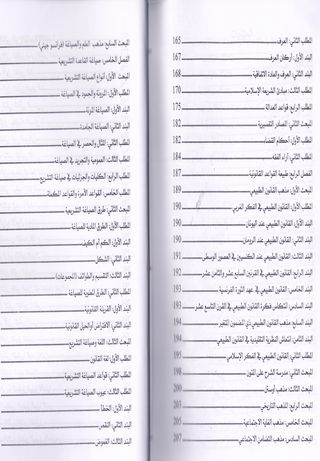 المطلب الثاني: العرف 165
البند الأول: أركان العرف 167
البند الثاني: العرف والعادة الاتفاقية 168
المطلب الثالث: مبادئ الشريعة الإسلامية 170
المطلب الرابع: قواعد العدالة 175
المبحث الثاني: المصادر التفسيرية 182
المطلب الأول: أحكام القضاء 182
المطلب الثاني: آراء الفقه 184
الفصل الرابع: طبيعة القواعد القانونية 187
المبحث الأول: مذهب القانون الطبيعي 189
المطلب الأول: القانون الطبيعي في الفكر الغربي 190
البند الأول: القانون الطبيعي عند اليونان 190
البند الثاني: القانون الطبيعي عند الرومان 190
البند الثالث: القانون الطبيعي عند الكنسيين في العصور الوسطى 191
البند الرابع: القانون الطبيعي في القرنين السابع عشر والثامن عشر 192
البند الخامس: القانون الطبيعي في عهد الثورة الفرنسية 193
البند السادس: انتكاس فكرة القانون الطبيعي في القرن التاسع عشر 193
البند السابع: مذهب القانون الطبيعي ذي المضمون المتغير 194
البند الثامن: انتعاش النظرية التقليدية في القانون الطبيعي 194
المطلب الثاني: القانون الطبيعي في الفكر الإسلامي 195
المبحث الثاني: مدرسة الشرح على المتون 198
المبحث الثالث: مذهب أوستن 200
المبحث الرابع: المذهب التاريخي 203
المبحث الخامس: مذهب الغاية الاجتماعية 205
المبحث السادس: مذهب التضامن الاجتماعي 207
المبحث السابع: مذهب العلم والصياغة (فرانسوا جيني)
الفصل الخامس: صياغة القاعدة التشريعية
المبحث الأول: أنواع الصياغة التشريعية
المطلب الأول: المرونة والجمود في الصياغة
البند الأول: الصياغة المرنة
البند الثاني: الصياغة الجامدة
المطلب الثاني: المثال والحصر في الصياغة
المطلب الثالث: العمومية والتجريد في الصياغة
المطلب الرابع: الكليات والجزئيات في صياغة التشريع
المطلب الخامس: القواعد الآمرة والقواعد المكملة
المبحث الثاني: طرق الصياغة التشريعية
المطلب الأول: الطرق المادية للصياغة
البند الأول: الكم أم الكيف
البند الثاني: الشكل
البند الثالث: التقسيم والطوائف (المجموعات)
المطلب الثاني: الطرق المعنوية للصياغة
البند الأول: القرينة القانونية
البند الثاني: الافتراض أو الحيل القانونية
المبحث الثالث: اللغة وصياغة التشريع
المطلب الأول: لغة القانون
المطلب الثاني: قواعد الصياغة التشريعية
المطلب الثالث: عيوب الصياغة التشريعية
البند الأول: الخطأ
البند الثاني: النقص
البند الثالث: الغموض